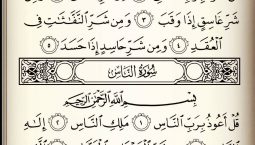 شَرِّ غَاسِقٍ إِذَا وَقَبَ ٣ وَمِن شَرِّ النَّفَّاثَاتِ فِي
الْعُقَدِ ٤ وَمِن شَرِّ حَاسِدٍ إِذَا حَسَدَ ٥
سُورَةُ النَّاسِ
بِسْمِ اللَّهِ الرَّحْمَٰنِ الرَّحِيمِ
قُلْ أَعُوذُ بِرَبِّ النَّاسِ ١ مَلِكِ النَّاسِ ٢ إِلَٰهِ